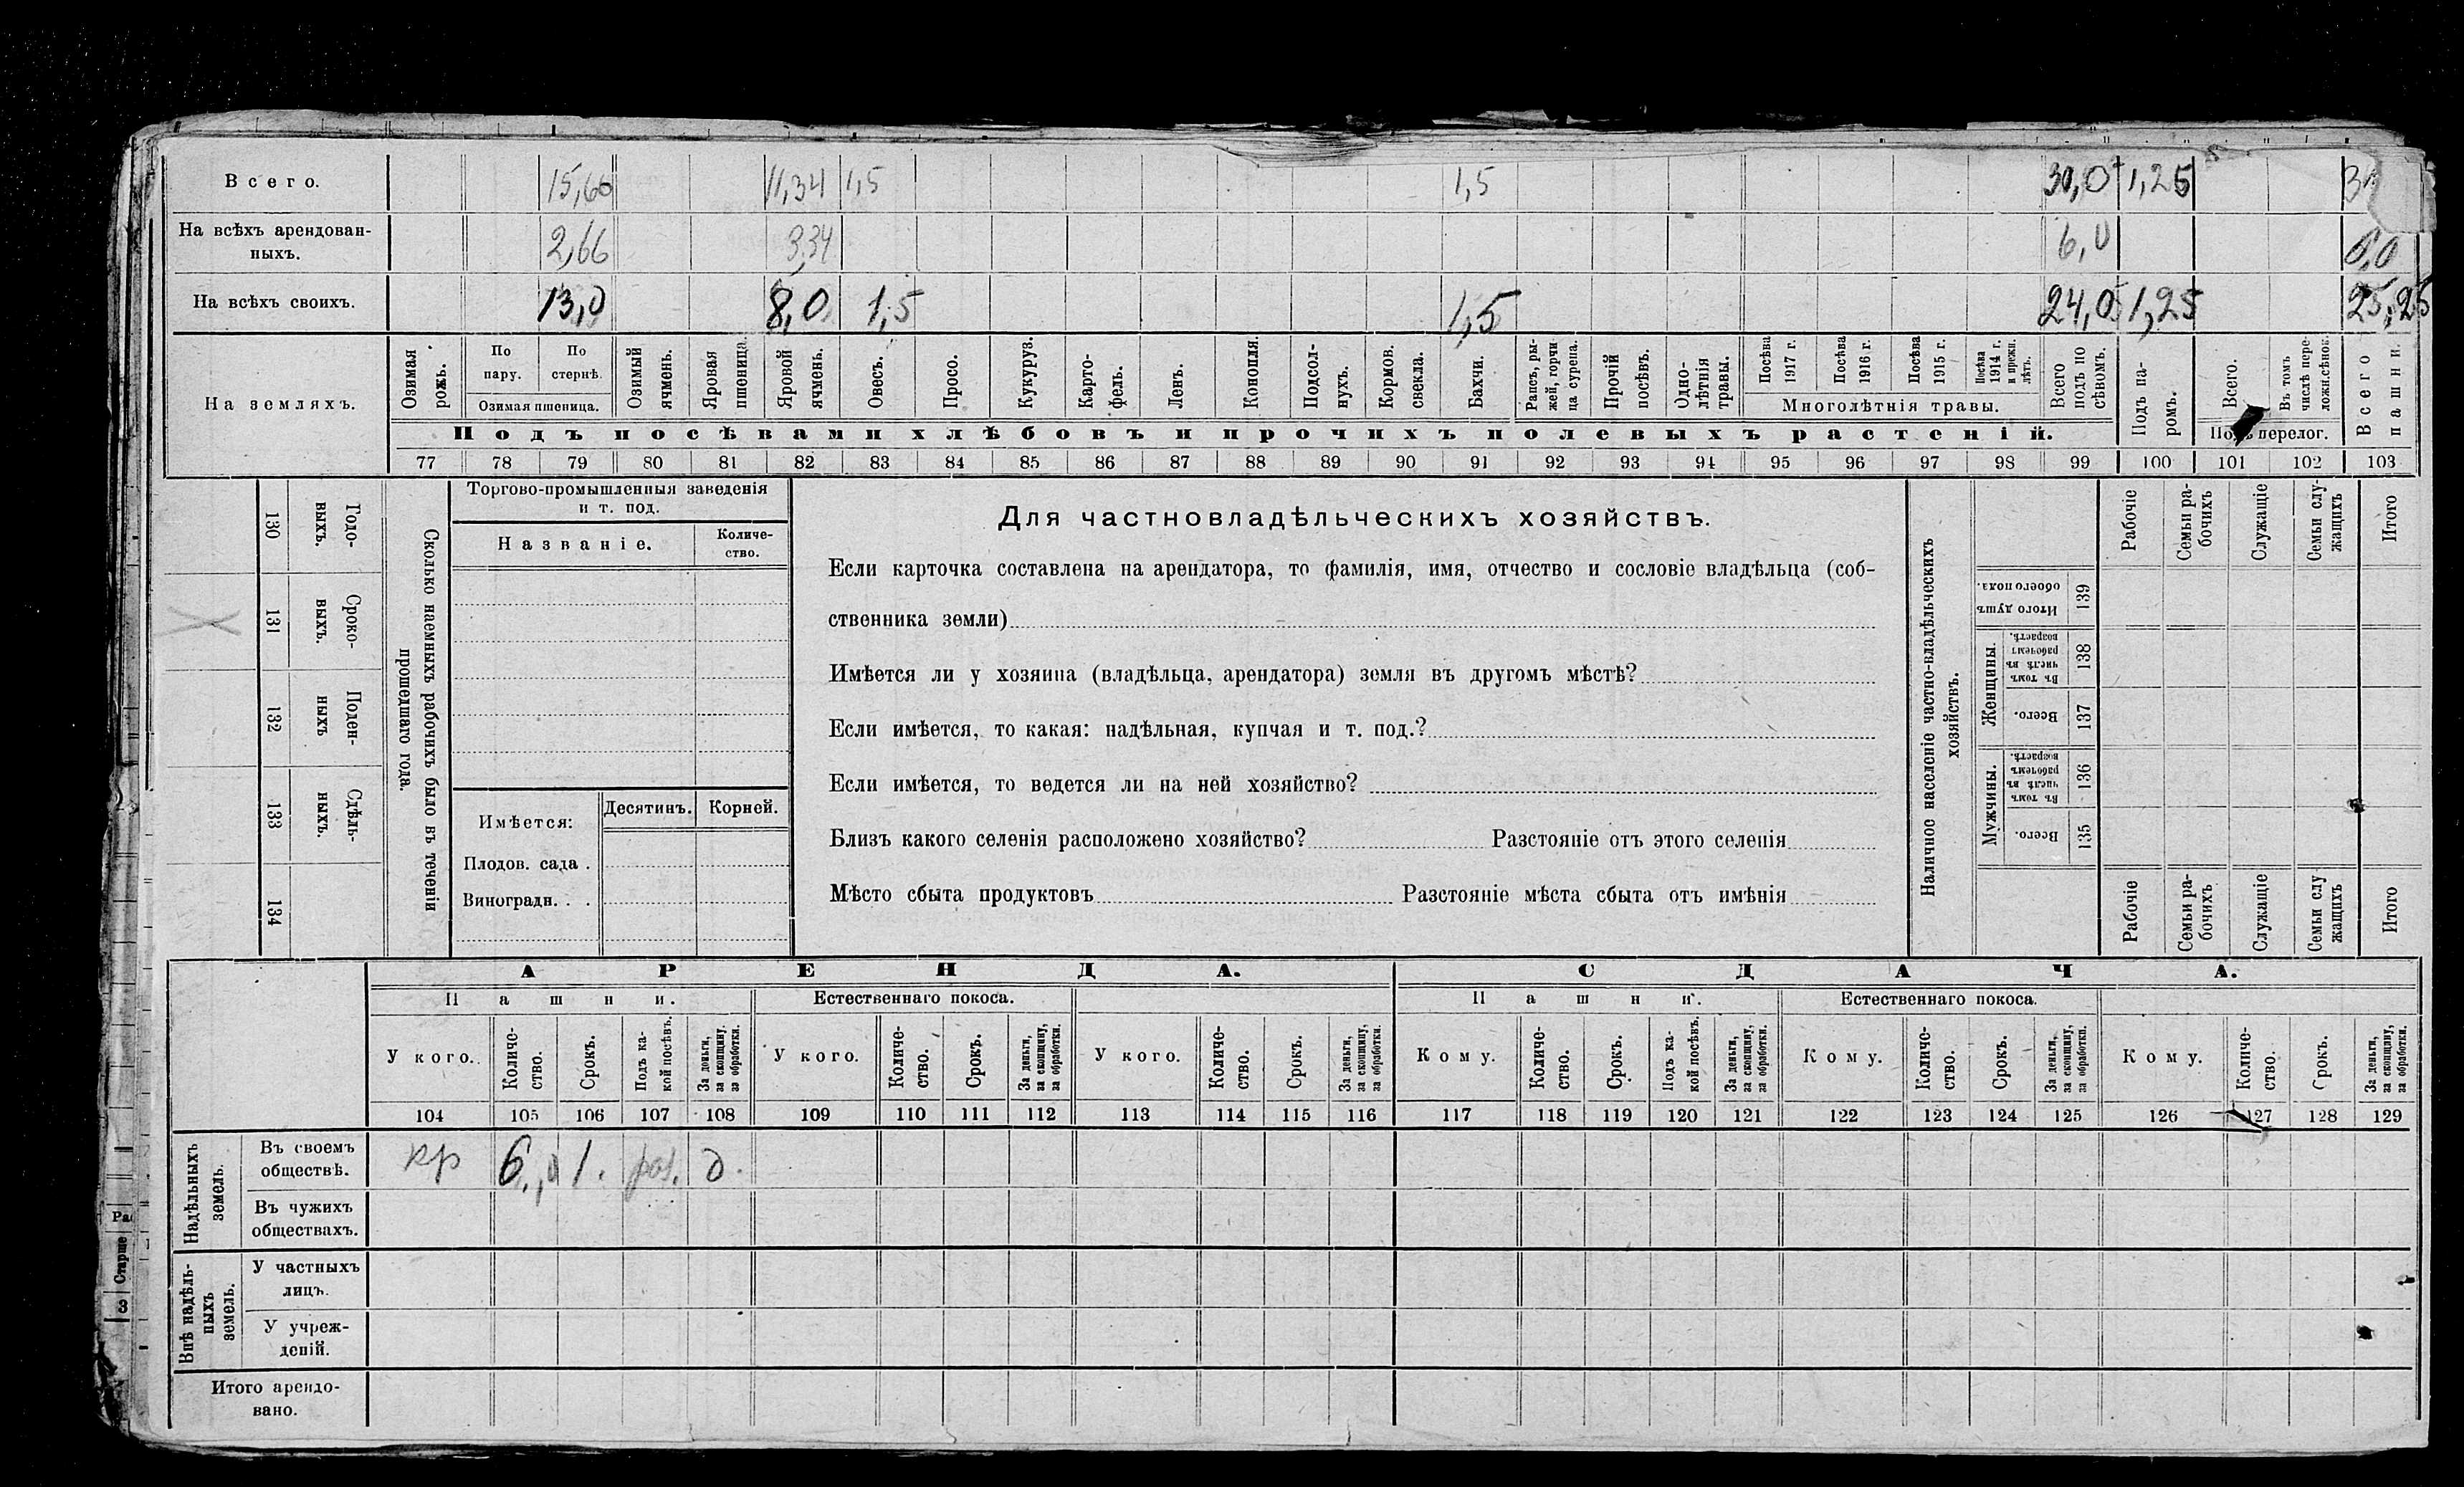 Всего. 15,66 11,34 1,5 1,5 30,0 1,25
На всѣхъ арендован-
ныхъ. 2,66 3,34 6,0 6,0
На всѣхъ своихъ. 13,0 8,0 1,5 1,5 24,0 1,25 25,25
На земляхъ.
Озимая рожь.
По пару.
По стернѣ.
Озимая пшеница.
Озимый ячмень.
Яровая пшеница.
Яровой ячмень.
Овесъ.
Просо.
Кукуруз.
Карто-
фель.
Ленъ.
Конопля.
Подсол-
нухъ.
Кормов. свекла.
Бахчи.
Рапсъ, ры-
жей, горчи-
ца сурепа.
Прочій посѣвъ.
Одно-
лѣтнія травы.
Посѣва 1917 г.
Посѣва 1916 г.
Посѣва 1915 г.
Посѣва 1914 г. и прежн. лѣтъ.
Многолѣтнія травы.
Всего подъ по сѣвомъ.
Подъ па-
ромъ.
Всего.
Въ томъ числѣ пере-
ложн.сѣнок.
Подъ перелог.
Всего пашни.
Подъ посѣвами хлѣбовъ и прочихъ полевыхъ растеній.
77 78 79 80 81 82 83 84 85 86 87 88 89 90 91 92 93 94 95 96 97 98 99 100 101 102 103
130 Годо-
выхъ.
131 Сроко-
выхъ.
132 Поден-
ныхъ
133 Сдѣль-
ныхъ.
134
Сколько наемныхъ рабочихъ было въ теченіи
прошедшаго года.
Торгово-промышленныя заведенія
и т. под.
Названіе.
Количе-
ство.
Имѣется: Десятинъ. Корней.
Плодов. сада .
Виноградн. . .
Для частновладѣльческихъ хозяйствъ.
Если карточка составлена на арендатора, то фамилія, имя, отчество и сословіе владѣльца (соб-
ственника земли)
Имѣется ли у хозяина (владѣльца, арендатора) земля въ другомъ мѣстѣ?
Если имѣется, то какая: надѣльная, купчая и т. под.?
Если имѣется, то ведется ли на ней хозяйство?
Близъ какого селенія расположено хозяйство? Разстояніе отъ этого селенія
Мѣсто сбыта продуктовъ Разстояніе мѣста сбыта отъ имѣнія
Наличное населеніе частно-владѣльческихъ
хозяйствъ.
Рабочіе
Семьи ра-
бочихъ
Служащіе
Семьи слу-
жащихъ
Итого
Итого душъ обоего пола. 139
Женщины.
Въ томъ числѣ въ рабочемъ возрастѣ. 138
Всего. 137
Мужчины.
Въ томъ числѣ въ рабочемъ возрастѣ. 136
Всего. 135
Рабочіе
Семьи ра-
бочихъ
Служащіе
Семьи слу
жащихъ
Итого
АРЕНДА. СДАЧА.
Пашни. Естественнаго покоса. Пашни. Естественнаго покоса.
У кого.
Количе-
ство.
Срокъ.
Подъ ка-
кой посѣвъ.
За деньги, за скопщину, за обработки.
У кого.
Количе-
ство.
Срокъ.
За деньги, за скопщину, за обработки.
У кого.
Количе-
ство.
Срокъ.
За деньги, за скопщину, за обработки.
Кому.
Количе-
ство.
Срокъ.
Подъ ка-
кой посѣвъ.
За деньги, за скопщину, за обработки.
Кому.
Количе-
ство.
Срокъ.
За деньги, за скопщину, за обработки.
Кому.
Количе-
ство.
Срокъ.
За деньги, за скопщину, за обработки.
104 105 106 107 108 109 110 111 112 113 114 115 116 117 118 119 120 121 122 123 124 125 126 127 128 129
Надѣльныхъ земель.
Въ своемъ
обществѣ. кр 6,0 1. д.
Въ чужихъ
обществахъ.
Внѣ надѣль-
ныхъ
земель.
У частныхъ
лицъ.
У учреж-
деній.
Итого арендо-
вано.
Старше
3